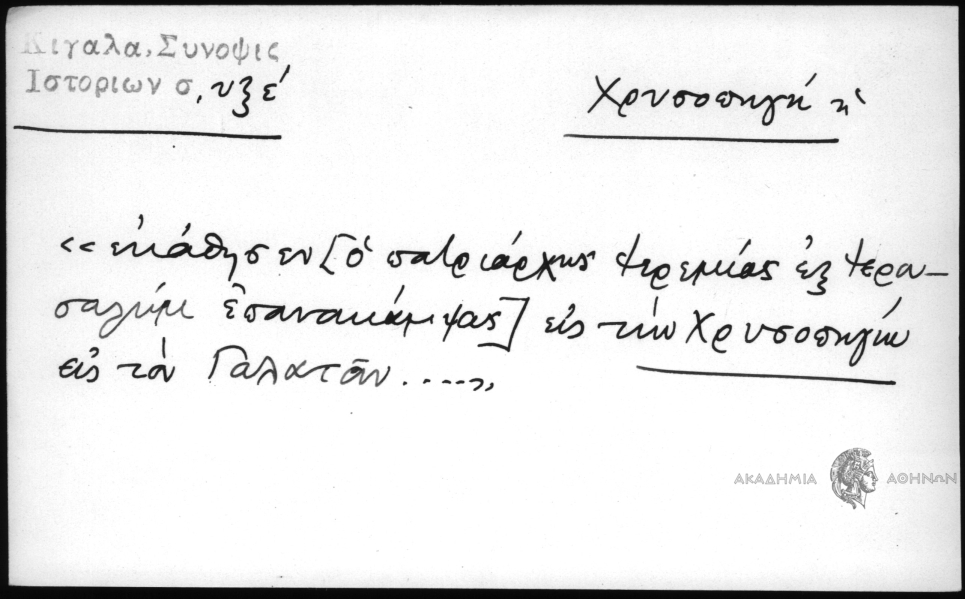 Κιγαλα, Συνοψις
Ιστοριων σ, υξε'
Χρυσοπηγή ἡ
«ἐκάθησεν [ὁ πατριάρχης Ἱερεμίας ἐξ Ἱερο–
σαλύμ ἐπανακάμψας] εἰς τὴν Χρυσοπηγήν
εἰς τὸν Γαλατᾶν.....»
ΑΚΑΔΗΜΙΑ ΑΘΗΝΩΝ